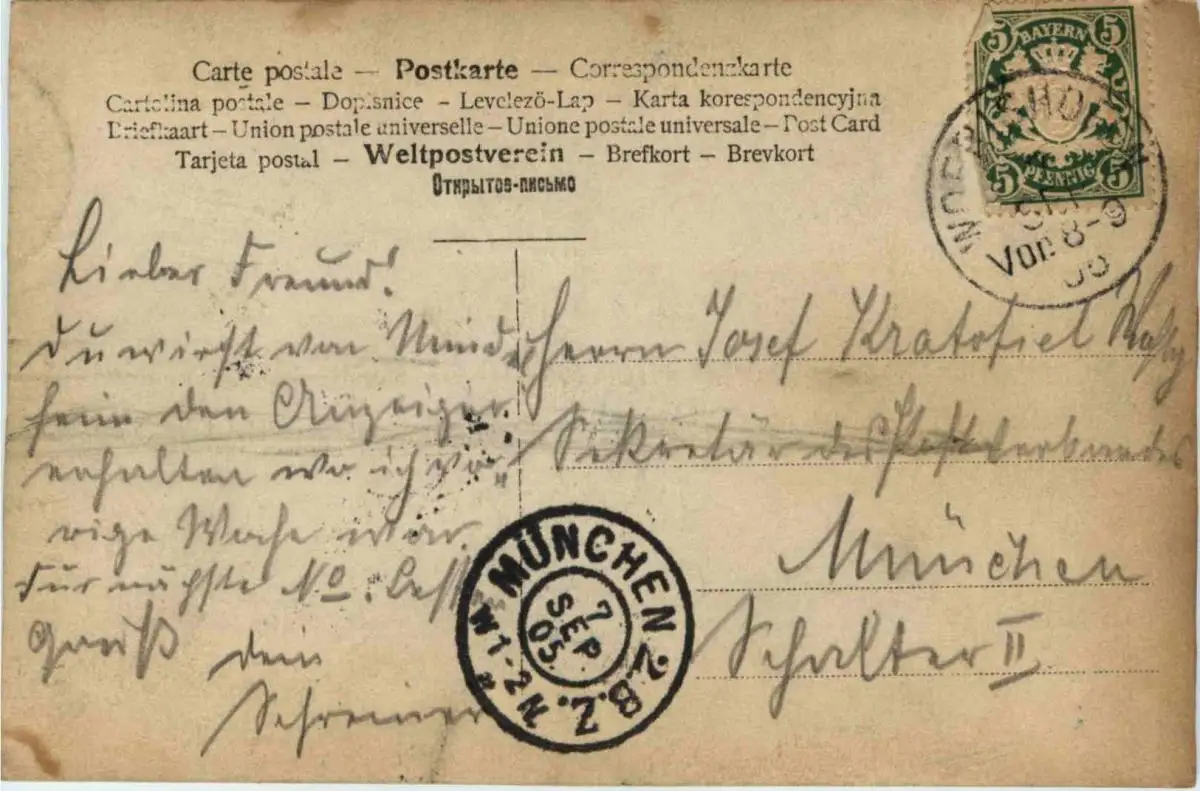 Carte postale — Postkarte — Correspondenzkarte
Cartolina postale – Dopisnice – Levelező-Lap – Karta korespondencyjna
Briefkaart – Union postale universelle – Unione postale universale – Post Card
Tarjeta postal – Weltpostverein – Brefkort – Brevkort
Открытое-письмо
5 BAYERN 5
5 PFENNIG 5
Vor. 8-9
Lieber Freund!
Du wirst von
heim den Anzeiger
erhalten wo ich vo-
rige Woche war.
Für nächste No.
Gruß dein
Schreiner
Herrn Josef Kratofiel
Sekretär des Postverbandes
München
Schalter II
MÜNCHEN 2.B.Z.
7
SEP
05
W 1-2 N